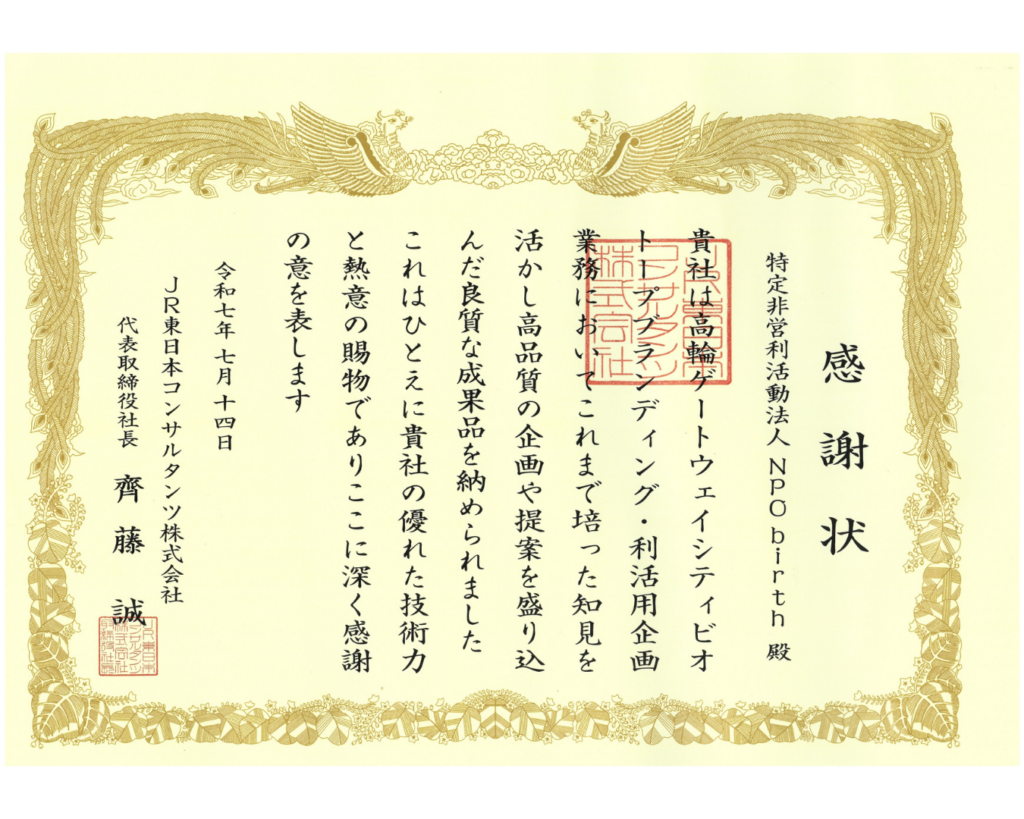 感謝状
特定非営利活動法人 NPO birth 殿
貴社は高輪ゲートウェイシティビオ
トープブランディング・利活用企画
業務においてこれまで培った知見を
活かし高品質の企画や提案を盛り込
んだ良質な成果品を納められました
これはひとえに貴社の優れた技術力
と熱意の賜物でありここに深く感謝
の意を表します
令和七年 七月 十四日
JR東日本コンサルタンツ株式会社
代表取締役社長 齊藤 誠
JR東日本
コンサルタンツ
株式会社